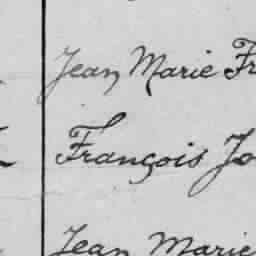 Jean Marie Fr
François Jo
Jean Marie